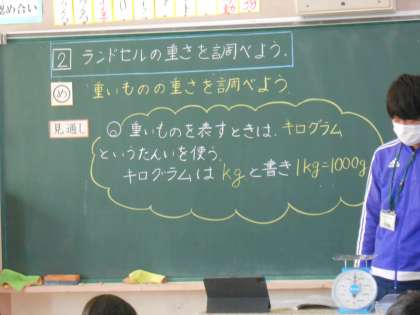 認め合い
2 ランドセルの重さを調べよう.
め 重いものの重さを調べよう.
見通し
◎ 重いものを表すときは、キログラム
というたんいを使う.
キログラムは kgと書き 1kg=1000g